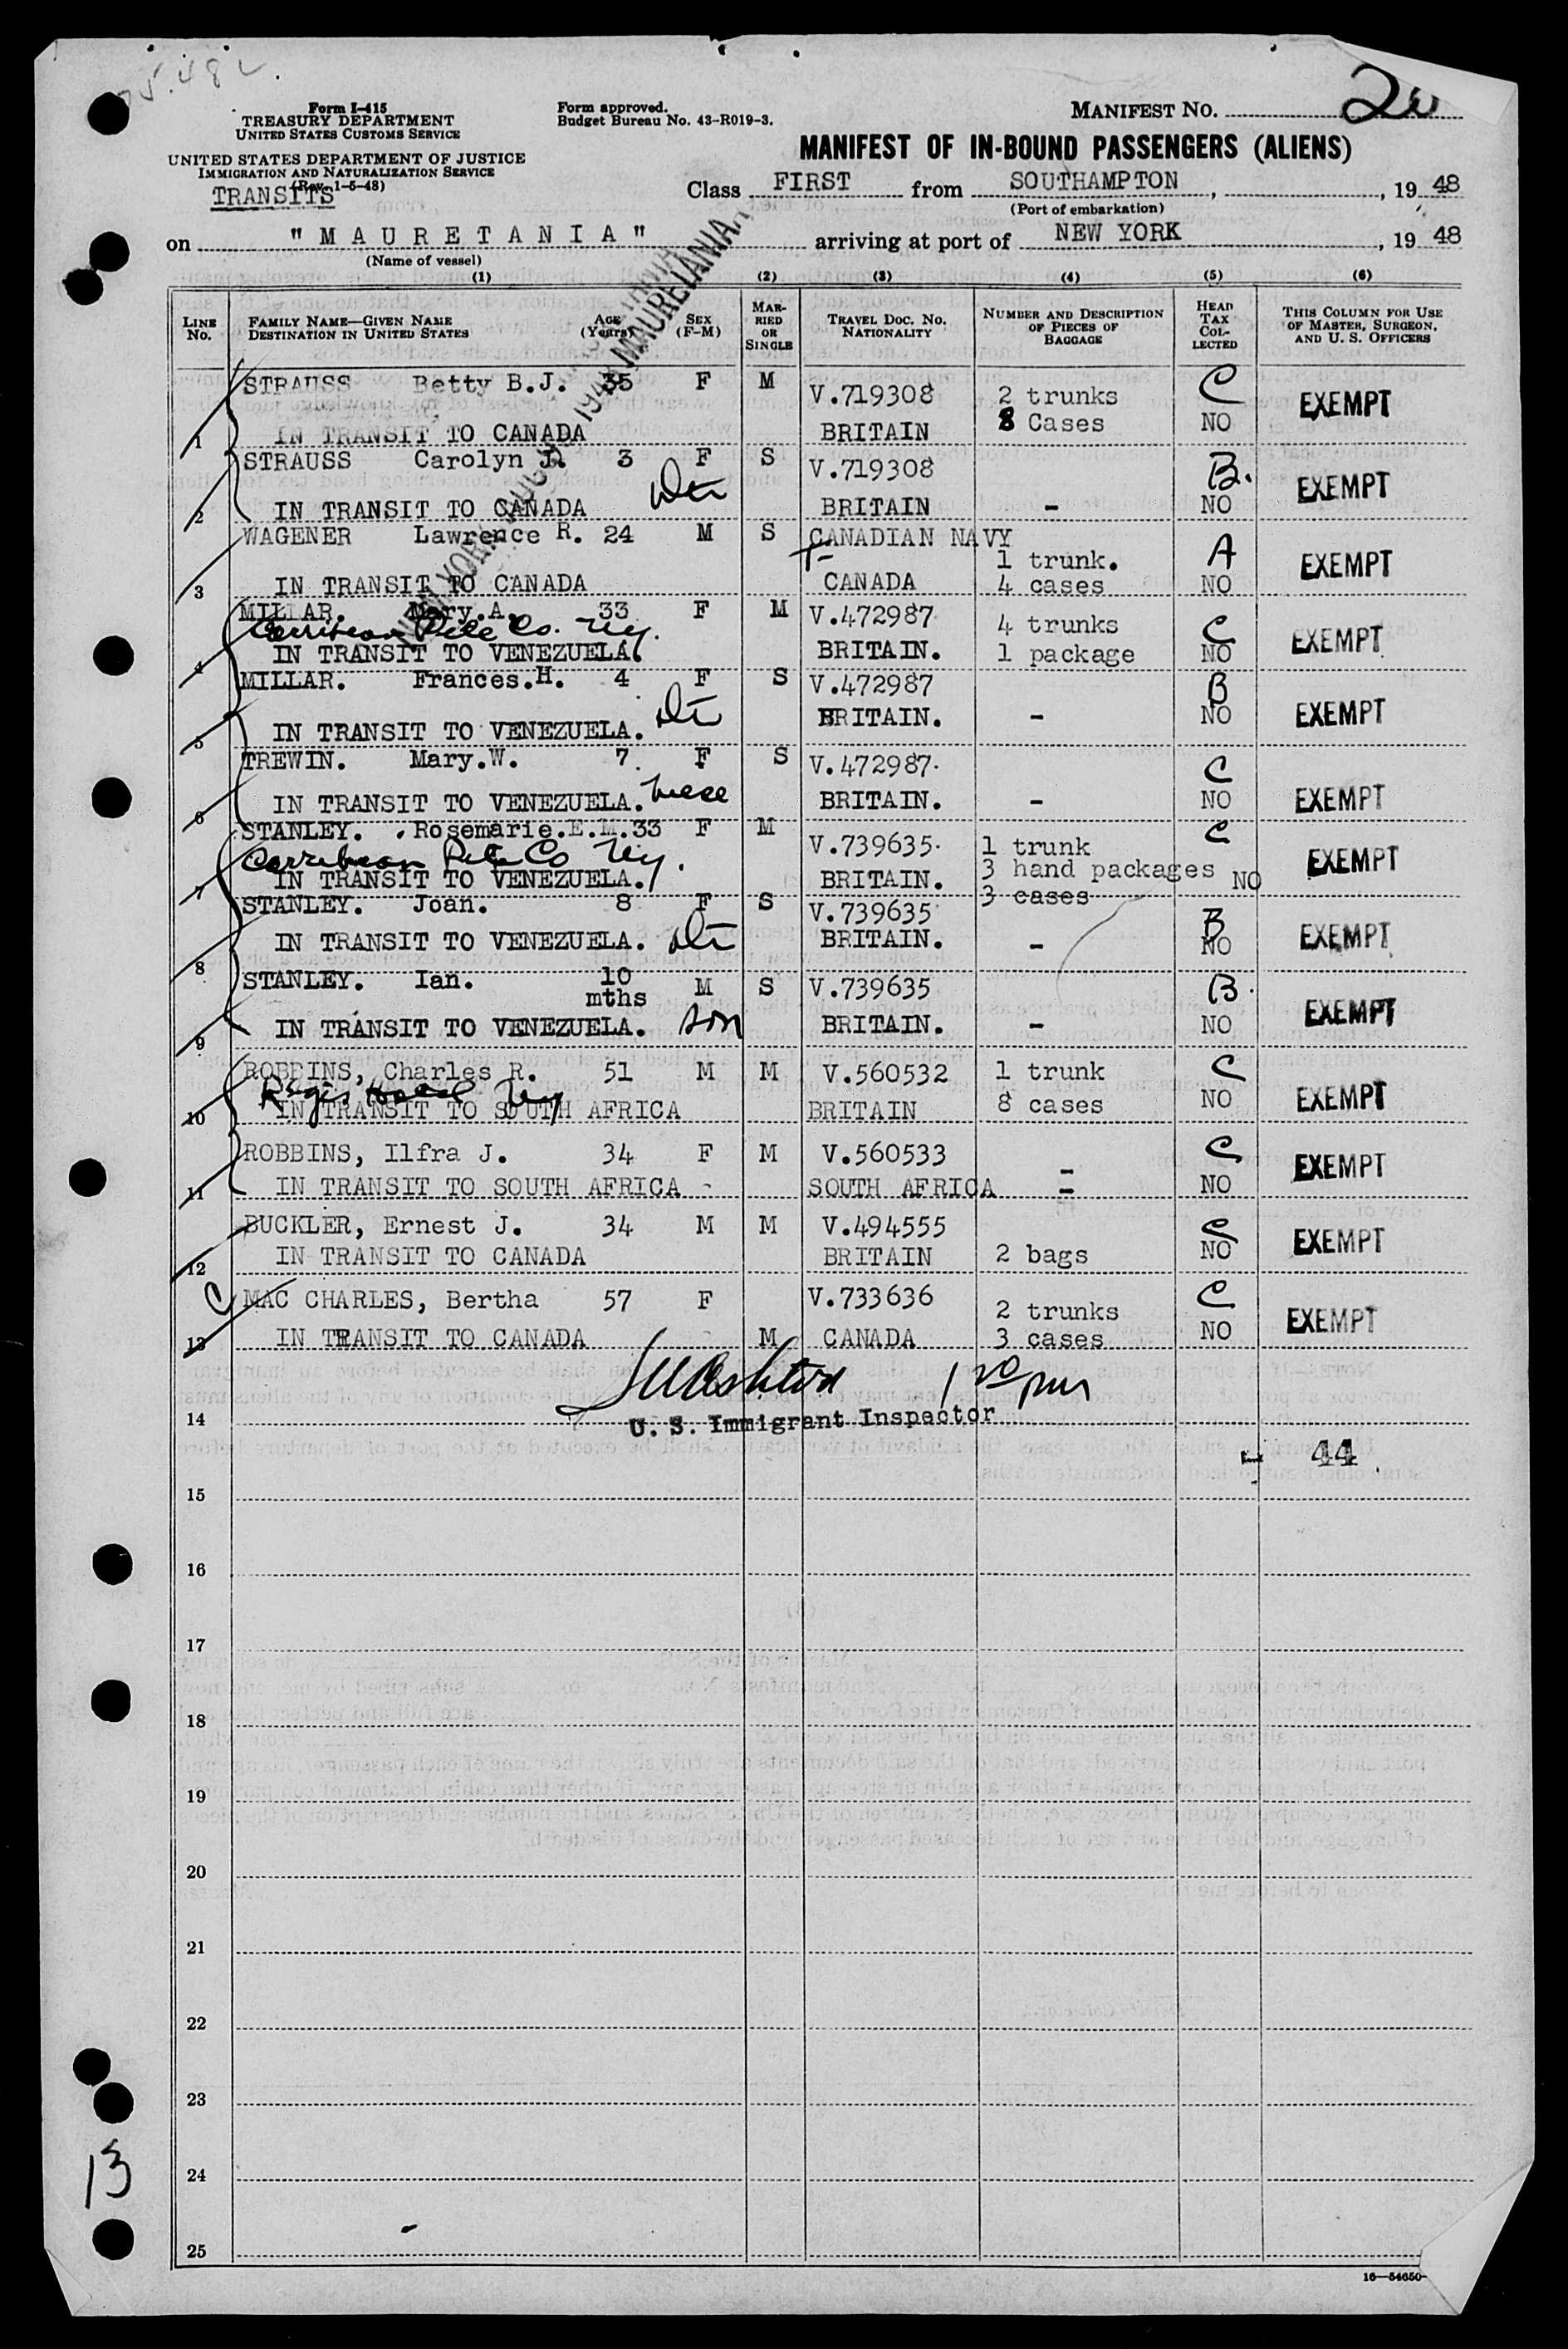 Form I-415
TREASURY DEPARTMENT
UNITED STATES CUSTOMS SERVICE
UNITED STATES DEPARTMENT OF JUSTICE
IMMIGRATION AND NATURALIZATION SERVICE
(Rev. 1-5-48)
TRANSITS
Form approved.
Budget Bureau No. 43-R019-3.
MANIFEST NO. 20
MANIFEST OF IN-BOUND PASSENGERS (ALIENS)
Class FIRST from SOUTHAMPTON, , 19 48
(Port of embarkation)
on "MAURETANIA" arriving at port of NEW YORK , 19 48
(Name of vessel)
MAURETANIA
(1) (2) (3) (4) (5) (6)
LINE No. FAMILY NAME—GIVEN NAME DESTINATION IN UNITED STATES AGE (Years) SEX (F-M) MARRIED OR SINGLE TRAVEL DOC. NO. NATIONALITY NUMBER AND DESCRIPTION OF PIECES OF BAGGAGE HEAD TAX COLLECTED THIS COLUMN FOR USE OF MASTER, SURGEON, AND U. S. OFFICERS
STRAUSS Betty B.J. 35 F M V.719308 2 trunks C EXEMPT
8 Cases
1 IN TRANSIT TO CANADA BRITAIN NO
STRAUSS Carolyn J. 3 F S V.719308 B. EXEMPT
Dtr
2 IN TRANSIT TO CANADA BRITAIN - NO
WAGENER Lawrence R. 24 M S CANADIAN NAVY A EXEMPT
1 trunk.
3 IN TRANSIT TO CANADA CANADA 4 cases NO
MILLAR. Mary.A. 33 F M V.472987 4 trunks C EXEMPT
Carribean Pete Co. Ny.
4 IN TRANSIT TO VENEZUELA. BRITAIN. 1 package NO
MILLAR. Frances.H. 4 F S V.472987 B EXEMPT
Dtr
5 IN TRANSIT TO VENEZUELA. BRITAIN. - NO
TREWIN. Mary.W. 7 F S V.472987. C EXEMPT
6 IN TRANSIT TO VENEZUELA. niece BRITAIN. - NO
STANLEY. Rosemarie.E.M. 33 F M V.739635. 1 trunk C EXEMPT
Carribean Pete Co Ny.
3 hand packages NO
7 IN TRANSIT TO VENEZUELA. BRITAIN. 3 cases
STANLEY. Joan. 8 F S V.739635 B EXEMPT
8 IN TRANSIT TO VENEZUELA. Dtr BRITAIN. - NO
STANLEY. Ian. 10 mths M S V.739635 B. EXEMPT
9 IN TRANSIT TO VENEZUELA. son BRITAIN. - NO
ROBBINS, Charles R. 51 M M V.560532 1 trunk C EXEMPT
Regis Hotel Ny
10 IN TRANSIT TO SOUTH AFRICA BRITAIN 8 cases NO
ROBBINS, Ilfra J. 34 F M V.560533 - C EXEMPT
11 IN TRANSIT TO SOUTH AFRICA SOUTH AFRICA - NO
BUCKLER, Ernest J. 34 M M V.494555 C EXEMPT
12 IN TRANSIT TO CANADA BRITAIN 2 bags NO
C MAC CHARLES, Bertha 57 F V.733636 2 trunks C EXEMPT
13 IN TRANSIT TO CANADA M CANADA 3 cases NO
1 20 pm
14 U. S. Immigrant Inspector
44
15
16
17
18
19
20
21
22
23
24
13
25
16—54650-